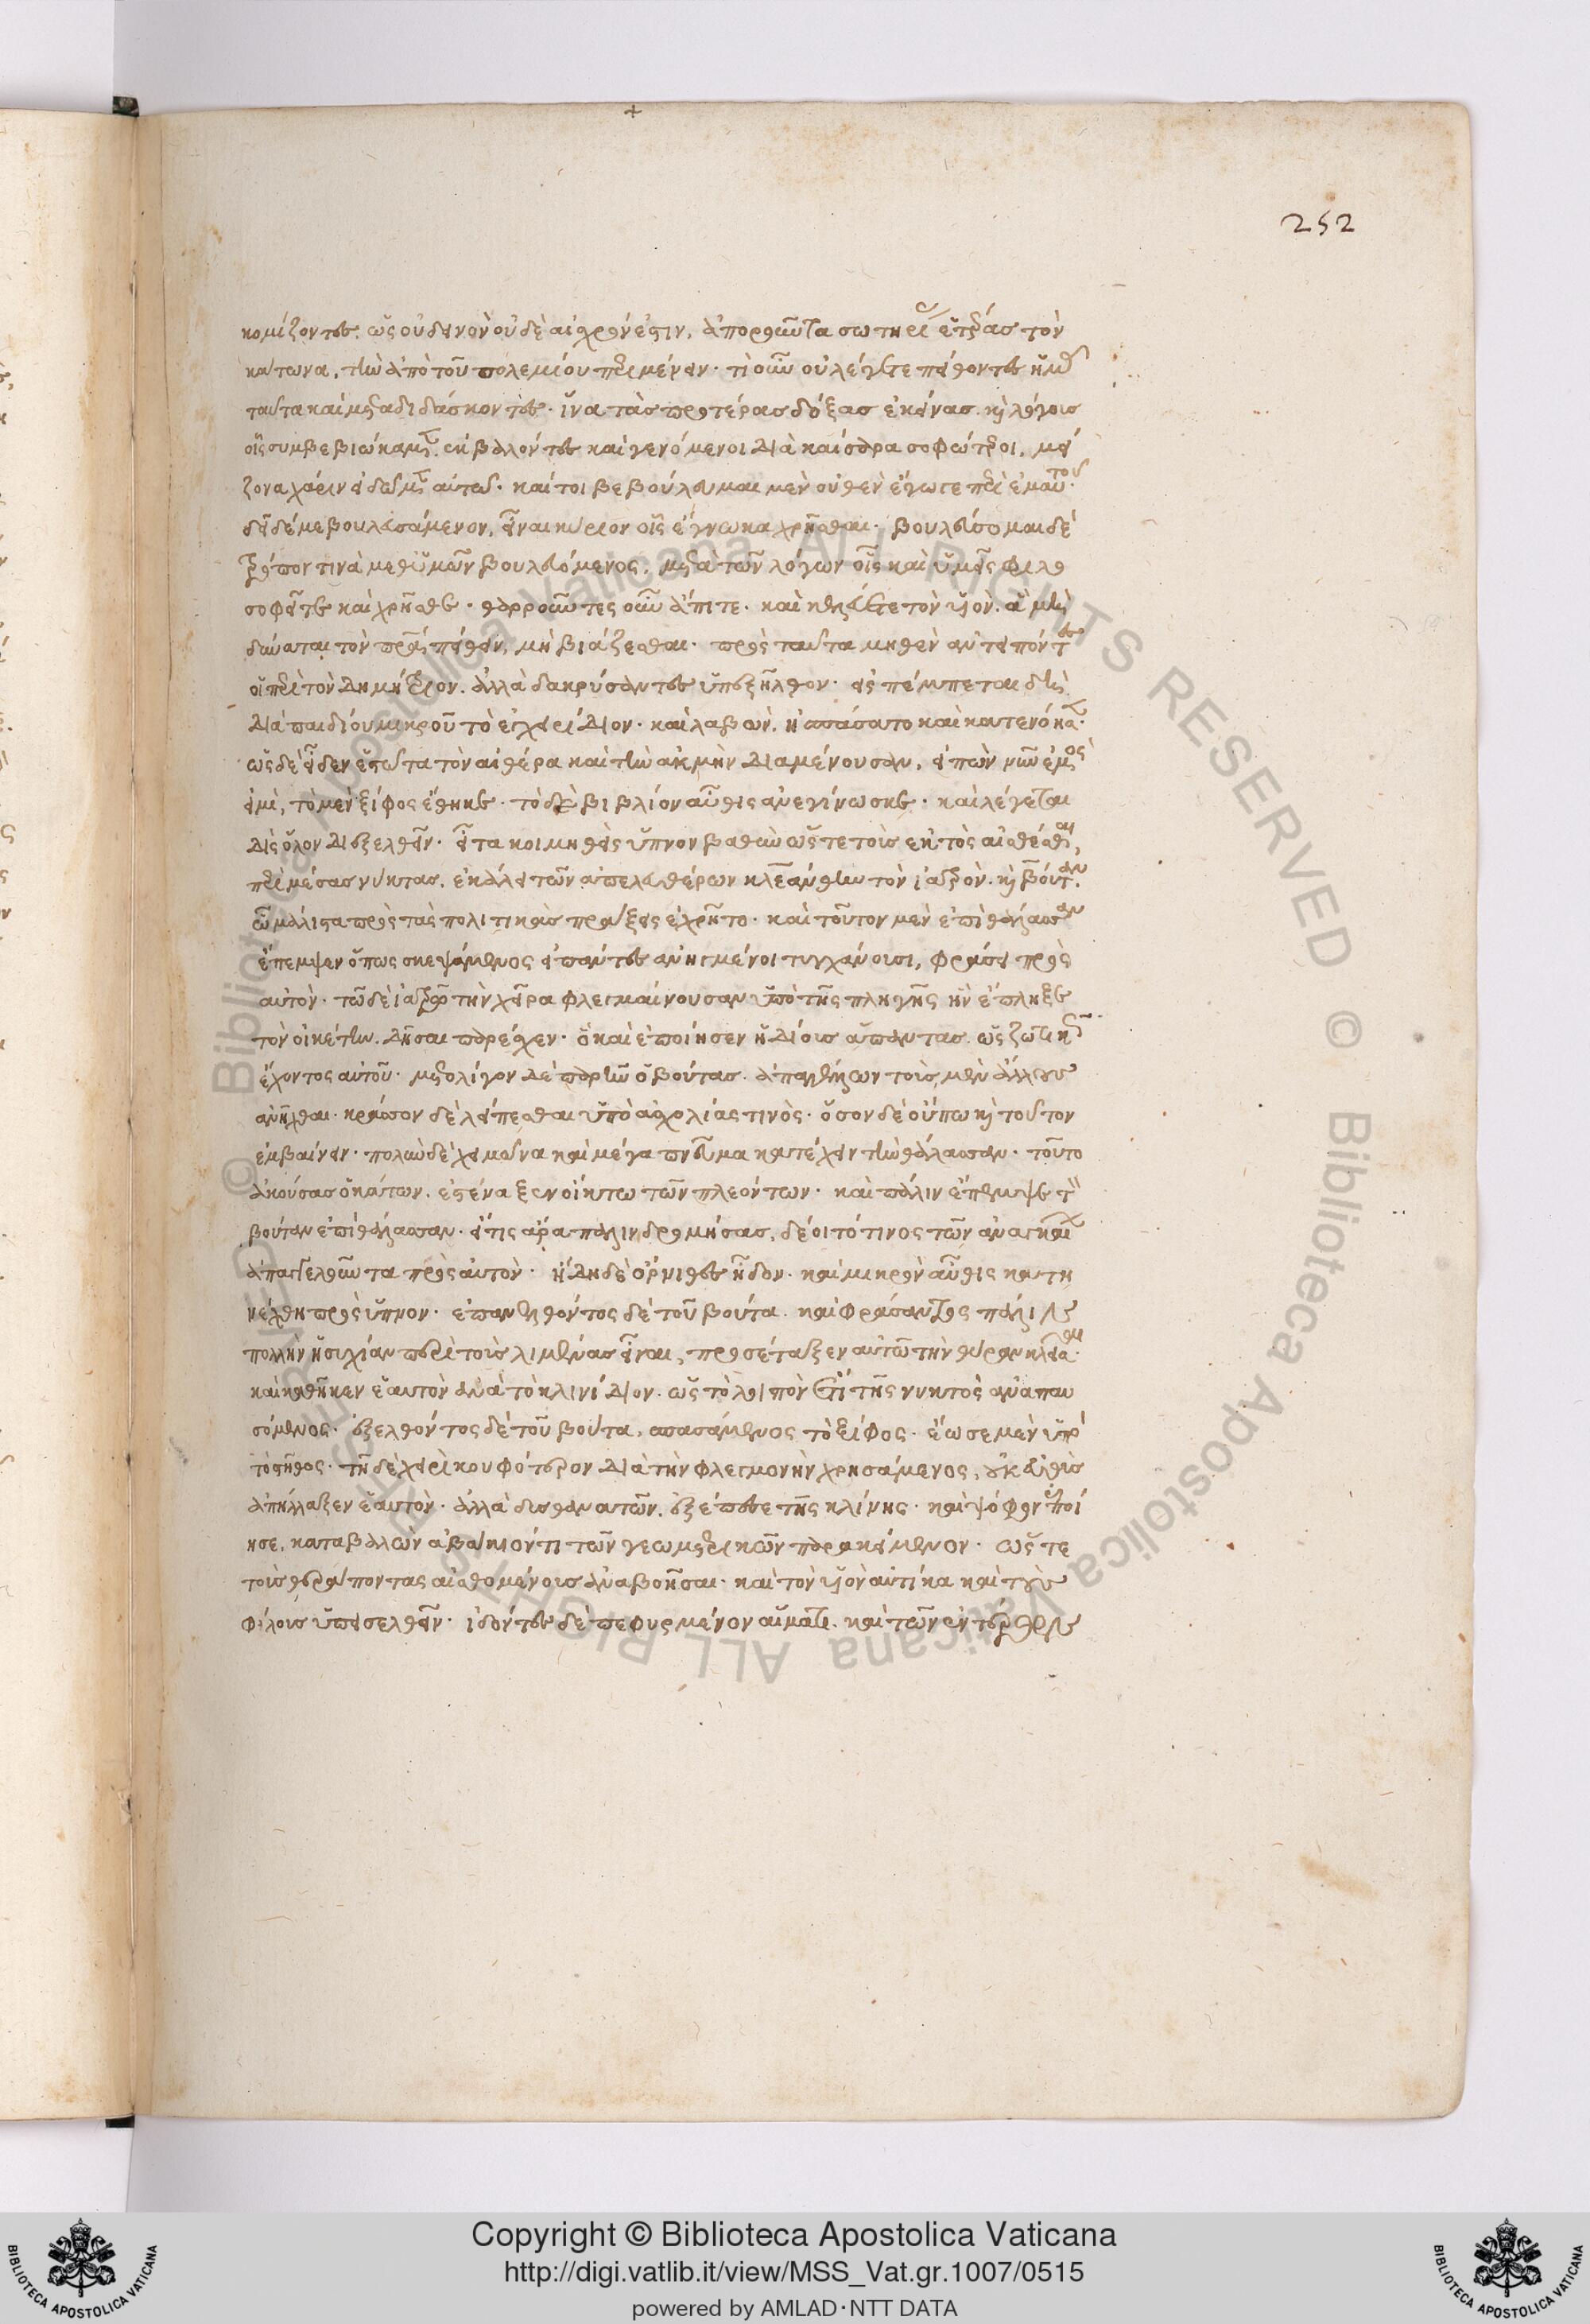 252
κομίζοντες. ὡς οὐ δεινὸν οὐδὲ αἰσχρόν ἐστιν, ἀποροῦντα σωτηρίας ἑτέρας τὸν
κάτωνα, τὴν ἀπὸ τοῦ πολεμίου περιμένειν· τί οὖν οὐ λέγετε πείθοντες ἡμᾶς
ταῦτα καὶ μεταδιδάσκοντες· ἵνα τὰς προτέρας δόξας ἐκείνας. καὶ λόγους
οἷς συμβεβιώκαμεν. ἐκβαλόντες καὶ γενόμενοι διὰ καίσαρα σοφώτεροι, μεί
ζονα χάριν εἰδῶμεν αὐτῷ· καίτοι βεβούλευμαι μὲν οὐθὲν ἔγωγε περὶ ἐμαυτοῦ·
δεῖ δέ με βουλευσάμενον, εἶναι κύριον οἷς ἔγνωκα χρῆσθαι· βουλεύσομαι δὲ
τρόπον τινὰ μεθ' ὑμῶν βουλευόμενος, μετὰ τῶν λόγων οἷς καὶ ὑμεῖς φιλο
σοφεῖτε καὶ χρῆσθε· θαρροῦντες οὖν ἄπιτε· καὶ κελεύετε τὸν υἱὸν. ἃ μὴ
δύναται τὸν πατέρα πείθειν, μὴ βιάζεσθαι· πρὸς ταῦτα μηθὲν ἀντειπόντες
οἱ περὶ τὸν Δημήτριον. ἀλλὰ δακρύσαντες ὑπεξῆλθον· εἰσπέμπεται δὲ
διὰ παιδίου μικροῦ τὸ ἐγχειρίδιον· καὶ λαβὼν. ἐσπάσατο καὶ κατενόησε·
ὡς δὲ εἶδεν ἑστῶτα τὸν ἀθέρα καὶ τὴν ἀκμὴν διαμένουσαν, εἰπὼν νῦν ἐμός
εἰμι, τὸ μὲν ξίφος ἔθηκε· τὸ δὲ βιβλίον αὖθις ἀνεγίνωσκε· καὶ λέγεται
δὶς ὅλον διεξελθεῖν· εἶτα κοιμηθεὶς ὕπνον βαθὺν ὥστε τοῖς ἐκτὸς αἰσθέσθαι,
περὶ μέσας νύκτας. ἐκάλει τῶν ἀπελευθέρων κλεάνθην τὸν ἰατρὸν. καὶ βούταν.
ᾧ μάλιστα πρὸς τὰς πολιτικὰς πράξεις ἐχρῆτο· καὶ τοῦτον μὲν ἐπὶ θάλασσαν
ἔπεμψεν ὅπως σκεψάμενος εἰ πάντες ἀνηγμένοι τυγχάνουσι, φράσει πρὸς
αὐτὸν· τῷ δὲ ἰατρῷ τὴν χεῖρα φλεγμαίνουσαν ὑπὸ τῆς πληγῆς ἣν ἔπληξε
τὸν οἰκέτην. δῆσαι παρέσχεν· ὃ καὶ ἐποίησεν ἡδίους ἅπαντας. ὡς ζωτικῶς
ἔχοντος αὐτοῦ· μετ' ὀλίγον δὲ παρῆν ὁ βούτας. ἀπαγγέλλων τοὺς μὲν ἄλλους
ἀνῆχθαι· κράσσον δὲ λείπεσθαι ὑπὸ ἀσχολίας τινὸς· ὅσον δὲ οὔπω καὶ τοῦτον
ἐμβαίνειν· πολὺν δὲ χειμῶνα καὶ μέγα πνεῦμα κατέχειν τὴν θάλασσαν· τοῦτο
ἀκούσας ὁ κάτων. ἐστέναξεν οἴκτῳ τῶν πλεόντων· καὶ πάλιν ἔπεμψε τὸν
βούταν ἐπὶ θάλασσαν· εἴ τις ἄρα παλινδρομήσας, δέοιτό τινος τῶν ἀναγκαίων
ἀπαγγελοῦντα πρὸς αὐτὸν· ἤδη δὲ ὄρνιθες ᾖδον· καὶ μικρὸν αὖθις κατη
νέχθη πρὸς ὕπνον· ἐπανελθόντος δὲ τοῦ βούτα. καὶ φράσαντος πολλὴν
πολλὴν ἡσυχίαν περὶ τοὺς λιμένας εἶναι, προσέταξεν αὐτῷ τὴν θύραν κλεῖσαι·
καὶ καθῆκεν ἑαυτὸν εἰς τὸ κλινίδιον. ὡς τὸ λοιπὸν ἔτι τῆς νυκτὸς ἀναπαυ
σόμενος· ἐξελθόντος δὲ τοῦ βούτα, σπασάμενος τὸ ξίφος· ἔωσε μὲν ὑπὸ
τὸ στῆθος· τῇ δὲ χειρὶ κουφότερον διὰ τὴν φλεγμονὴν χρησάμενος, οὐκ εὐθὺς
ἀπήλλαξεν ἑαυτὸν· ἀλλὰ δυσθανατῶν. ἐξέπεσε τῆς κλίνης· καὶ ψόφον ἐποί
ησε, καταβαλὼν ἀβάκιόν τι τῶν γεωμετρικῶν παρακείμενον· ὥστε
τοὺς θεράποντας αἰσθομένους ἀναβοῆσαι· καὶ τὸν υἱὸν αὐτίκα καὶ τοὺς
φίλους ὑπεισελθεῖν· ἰδόντες δὲ πεφυρμένον αἵματι. καὶ τῶν ἐντέρων
Copyright © Biblioteca Apostolica Vaticana
http://digi.vatlib.it/view/MSS_Vat.gr.1007/0515
powered by AMLAD·NTT DATA